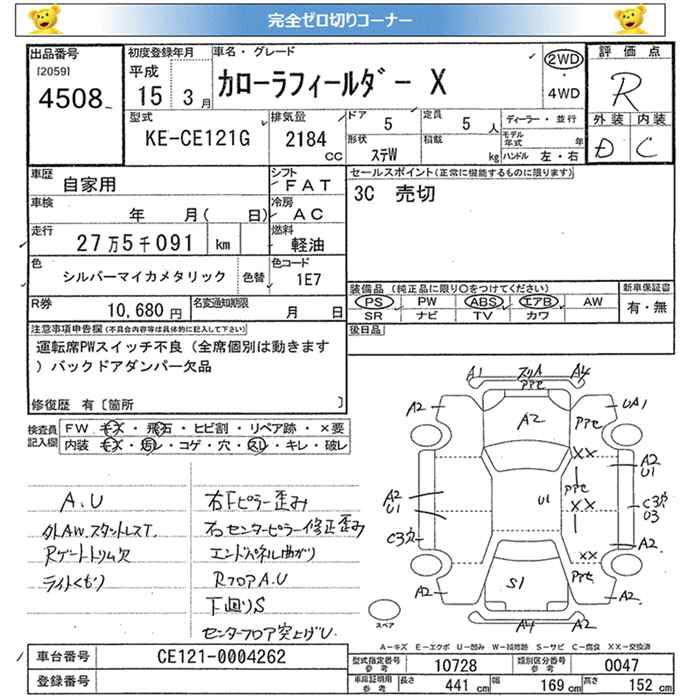 完全ゼロ切りコーナー
出品番号
[2059]
4508
初度登録年月
平成
15 年 3 月
車名・グレード
カローラフィールダー X
2WD
・
4WD
評価点
R
外装 内装
D C
型式
KE-CE121G
排気量
2184 cc
ドア 5
定員 5 人
形状 ステW
積載 kg
ディーラー・並行
モデル年式 年
ハンドル 左・右
車歴
自家用
シフト FAT
車検
年 月( 日)
冷房 AC
走行
27万5千091 km
燃料 軽油
色
シルバーマイカメタリック
色替
色コード 1E7
R券 10,680 円
名変通知期限 月 日
セールスポイント(正常に機能するものに限ります)
3C 売切
装備品 (純正品に限り○をつけてください)
PS PW ABS エアB AW
SR ナビ TV カワ
新車保証書
有・無
後日品
注意事項申告欄 (不具合内容等は具体的に記入して下さい)
運転席PWスイッチ不良(全席個別は動きます
)バックドアダンパー欠品
修復歴 有〔箇所 〕
検査員記入欄
FW キズ・飛石・ヒビ割・リペア跡・×要
内装 キズ・汚レ・コゲ・穴・スレ・キレ・破レ
A.U
外AW.スタットレスT.
Rゲートトリム欠
ライトくもり
右Fピラー歪み
右センターピラー修正歪み
エンドパネル曲がり
RフロアA.U
下回りS
センターフロア突上げU.
A1 スリA A4
PPセ
A2 A2 PPセ UA1
XX
A2
U1
A2
U1
U1
PPセ
XX
C3穴
U3
C3穴
XX
A2
S1
PPセ
A2 A4 A2 A2
スペア
A=キズ E=エクボ U=凹み W=補修跡 S=サビ C=腐食 XX=交換済
車台番号 CE121-0004262
登録番号
型式指定番号 参考 10728
類別区分番号 参考 0047
車庫証明用 参考 長さ 441 cm 幅 169 cm 高さ 152 cm